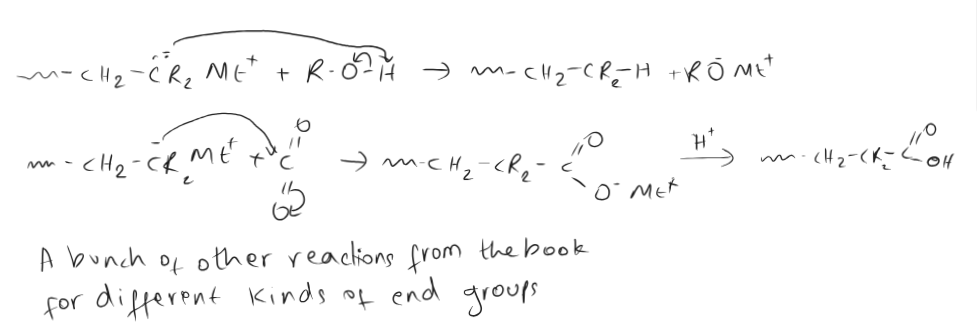 ~CH₂-C̄R₂ Mt⁺ + R-O-H → ~CH₂-CR₂-H + RŌ Mt⁺
~CH₂-C̄R₂ Mt⁺ + O=C=O → ~CH₂-CR₂-C(=O)O⁻ Mt⁺ —H⁺→ ~CH₂-CR₂-C(=O)OH
A bunch of other reactions from the book
for different kinds of end groups